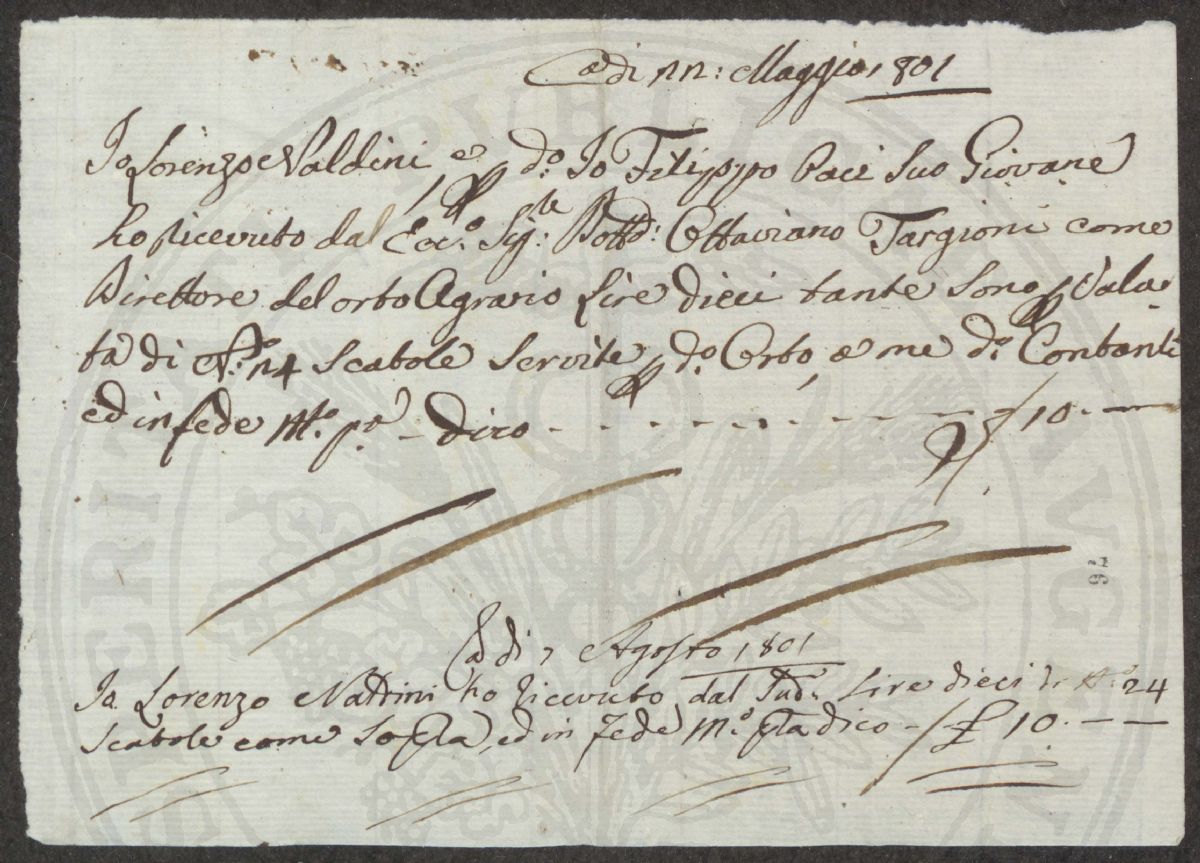 Adi 22: Maggio 1801
Io Lorenzo Valdini e p do. Io Filippo Paci Suo Giovane
ho ricevuto dal Ecc.o Sig: Dottd: Ottaviano Targioni come
Direttore del orto Agrario lire dieci tante Sono p Valu
ta di No. 24 Scatole Servite p do. Orto, a me do. Contanti
ed in fede Mo. pa - dico - - - - - - - - - £ 10. —
Adi 7 Agosto 1801
Io Lorenzo ho ricevuto dal Sud: lire dieci 24
Scatole come Sopra, ed in fede Mo. pra dico - £ 10. — —
76